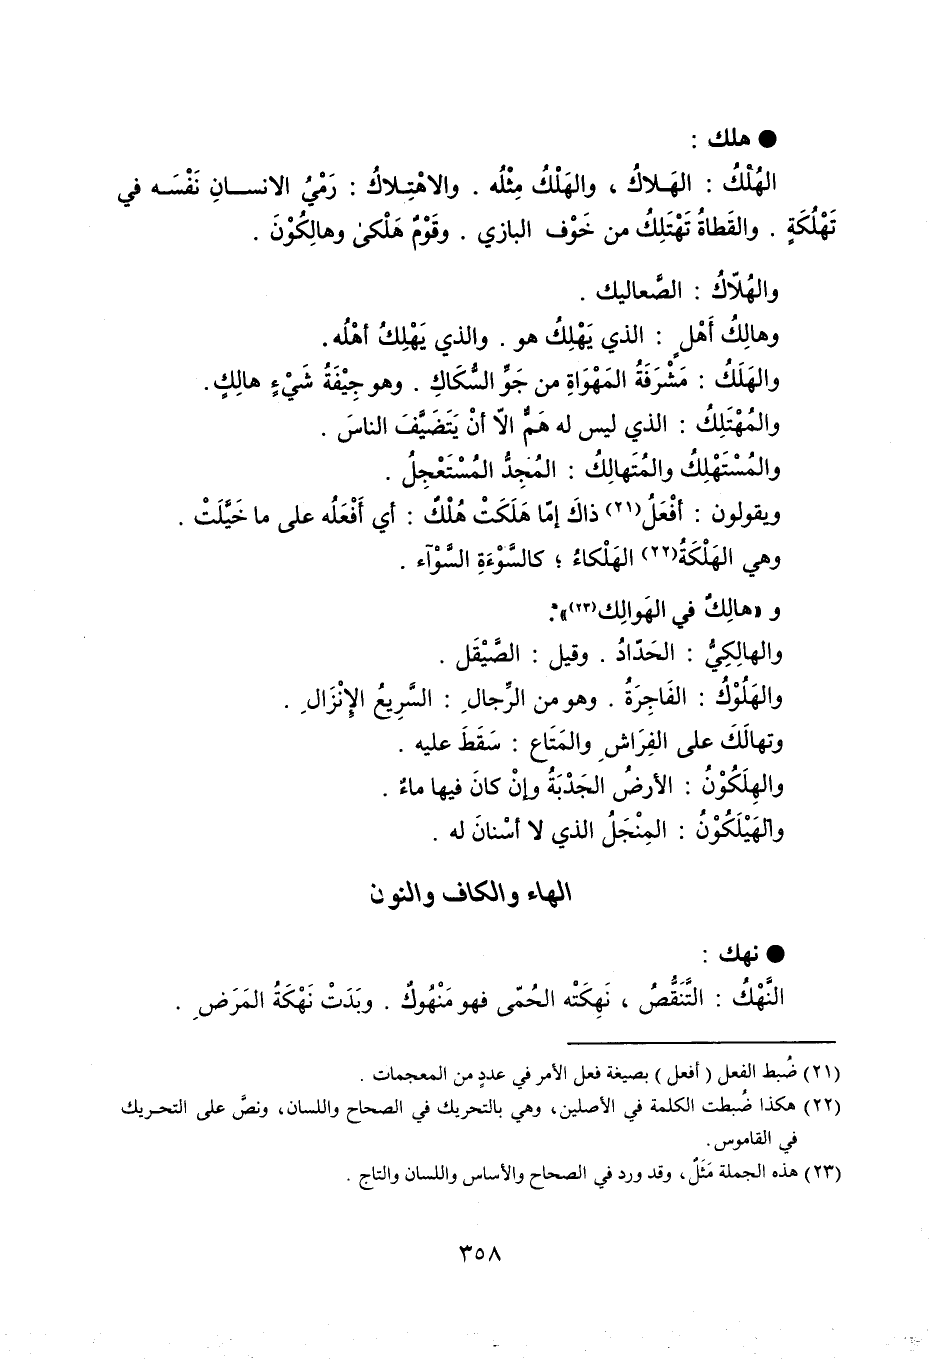 ● هلك :
الهُلْكُ : الهَلاكُ ، والهَلْكُ مِثْلُه . والاهْتِلاكُ : رَمْيُ الانسانِ نَفْسَه في
تَهْلُكَةٍ . والقَطاةُ تَهْتَلِكُ من خَوْف البازي . وقَوْمٌ هَلْكىٰ وهالِكُوْنَ .
والهُلّاكُ : الصَّعاليك .
وهالِكُ أَهْلٍ : الذي يَهْلِكُ هو . والذي يَهْلِكُ أهْلُه.
والهَلَكُ : مَشْرَفَةُ المَهْوَاةِ من جَوِّ السُّكَاكِ . وهو جِيْفَةُ شَيْءٍ هالِكٍ.
والمُهْتَلِكُ : الذي ليس له هَمٌّ الّا أنْ يَتَضَيَّفَ الناسَ .
والمُسْتَهْلِكُ والمُتَهالِكُ : المُجِدُّ المُسْتَعْجِلُ .
ويقولون : أفْعَلُ(٢١) ذاكَ إمّا هَلَكَتْ هُلْكٌ : أي أَفْعَلُه على ما خَيَّلَتْ .
وهي الهَلْكَةُ(٢٢) الهَلْكاءُ ؛ كالسَّوْءَةِ السَّوْآء .
و «هالِكٌ في الهَوالِك(٢٣)».
والهالِكِيُّ : الحَدّادُ . وقيل : الصَّيْقَل .
والهَلُوْكُ : الفَاجِرَةُ . وهو من الرِّجالِ : السَّرِيعُ الإِنْزَالِ .
وتهالَكَ على الفِرَاشِ والمَتَاع : سَقَطَ عليه .
والهِلَكُوْنُ : الأرضُ الجَدْبَةُ وإنْ كانَ فيها ماءٌ .
والهَيْلَكُوْنُ : المِنْجَلُ الذي لا أسْنانَ له .
الهاء والكاف والنون
● نهك :
النَّهْكُ : التَّنَقُّصُ ، نَهِكَتْه الحُمّى فهو مَنْهُوكٌ . وبَدَتْ نَهْكَةُ المَرَضِ .
(٢١) ضُبط الفعل ( أفعل ) بصيغة فعل الأمر في عددٍ من المعجمات .
(٢٢) هكذا ضُبطت الكلمة في الأصلين، وهي بالتحريك في الصحاح واللسان، ونصَّ على التحريك
في القاموس.
(٢٣) هذه الجملة مَثَلٌ، وقد ورد في الصحاح والأساس واللسان والتاج .
٣٥٨